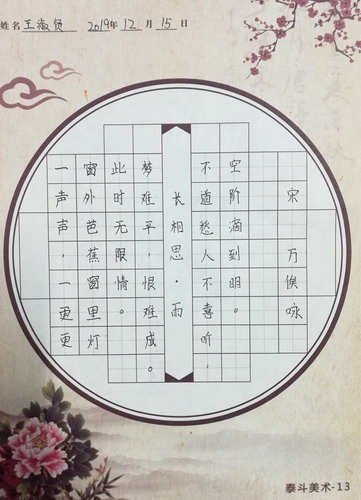 姓名 2019年 12 月 15 日
一声声,一更更
窗外芭蕉窗里灯
此时无限情。
梦难平,恨难成。
长相思·雨
不道愁人不喜听,
空阶滴到明。
宋 万俟咏
泰斗美术-13